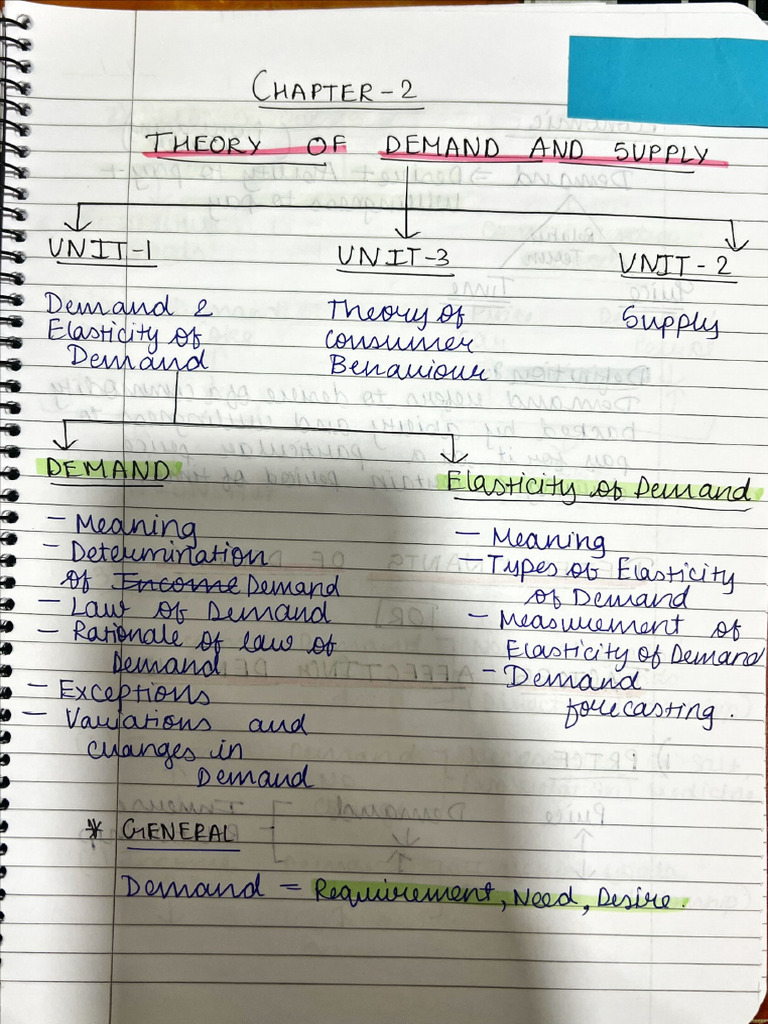 CHAPTER-2
THEORY OF DEMAND AND SUPPLY
UNIT-1
Demand &
Elasticity of
Demand
UNIT-3
Theory of
consumer
Behaviour
UNIT-2
Supply
DEMAND
- Meaning
- Determination
of Income Demand
- Law of Demand
- Rationale of law of
Demand
- Exceptions
- Variations and
changes in
Demand
Elasticity of Demand
- Meaning
- Types of Elasticity
of Demand
- Measurement of
Elasticity of Demand
- Demand
forecasting.
* GENERAL
Demand = Requirement, Need, Desire.